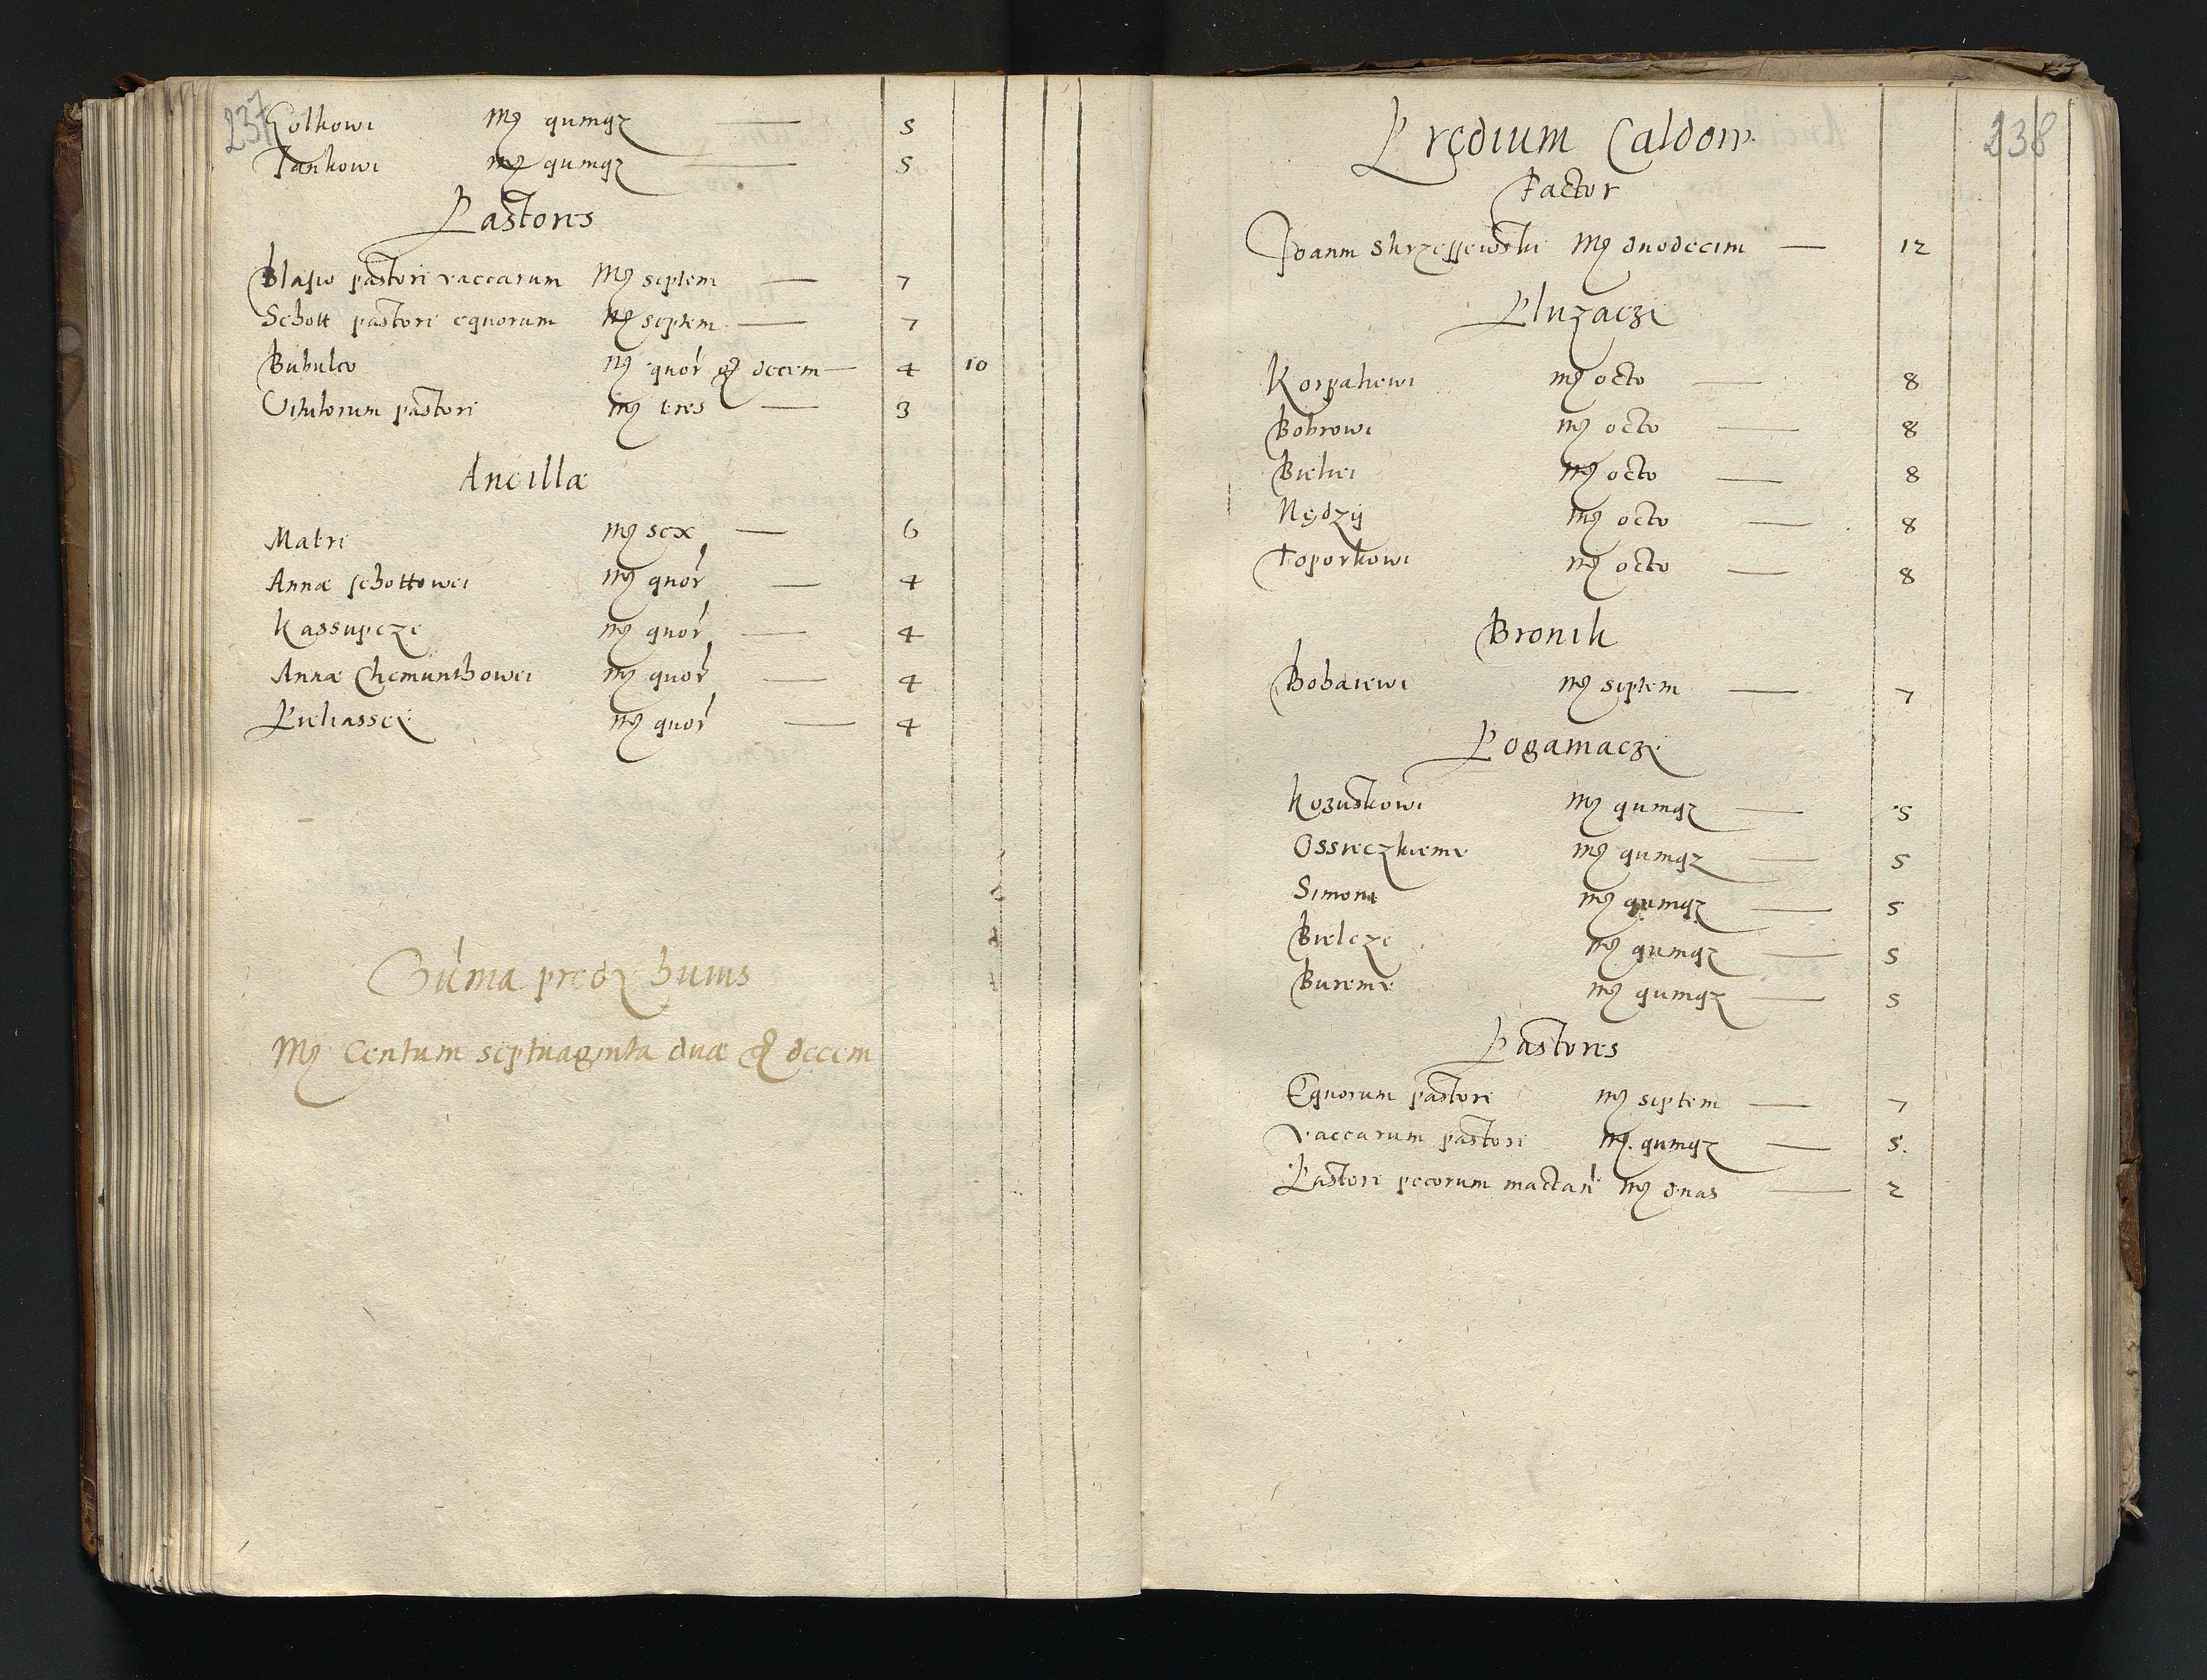 237
Golkowi Mꝫ quinqz — 5
Jankowi Mꝫ quinqz — 5
Pastores
Blasio pastori vaccarum Mꝫ septem — 7
Schott pastori equorum Mꝫ septem — 7
Bubulco Mꝫ quor gͦ decem — 4 10
Vitulorum pastori Mꝫ tres — 3
Ancillæ
Matri Mꝫ sex — 6
Annæ schottowei Mꝫ quor — 4
Kassupcze Mꝫ quor — 4
Annæ Chemunthowei Mꝫ quor — 4
Piekassei Mꝫ quor — 4
Suma predÿ huius
Mꝫ Centum septuaginta duæ gͦ decem
238
Prędium Caldow
Factor
Joanni Skrzessewskii Mꝫ duodecim — 12
Pluzaczi
Korpakewi Mꝫ octo — 8
Bobrowi Mꝫ octo — 8
Biekei Mꝫ octo — 8
Nędzÿ Mꝫ octo — 8
Toporkowi Mꝫ octo — 8
Bronik
Bobaiewi Mꝫ septem — 7
Poganiaczÿ
Kozuskowi Mꝫ quinqz — 5
Ossieczkiemu Mꝫ quinqz — 5
Simoni Mꝫ quinqz — 5
Bielcze Mꝫ quinqz — 5
Buremu Mꝫ quinqz — 5
Pastores
Equorum pastori Mꝫ septem — 7
Vaccarum pastori Mꝫ quinqz — 5
Pastori pecorum mactan Mꝫ duas — 2